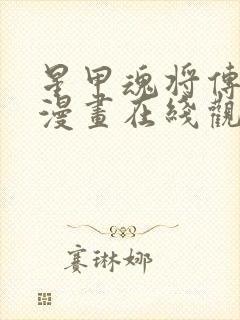 星甲魂將傳
漫畫在綫觀
賽琳娜